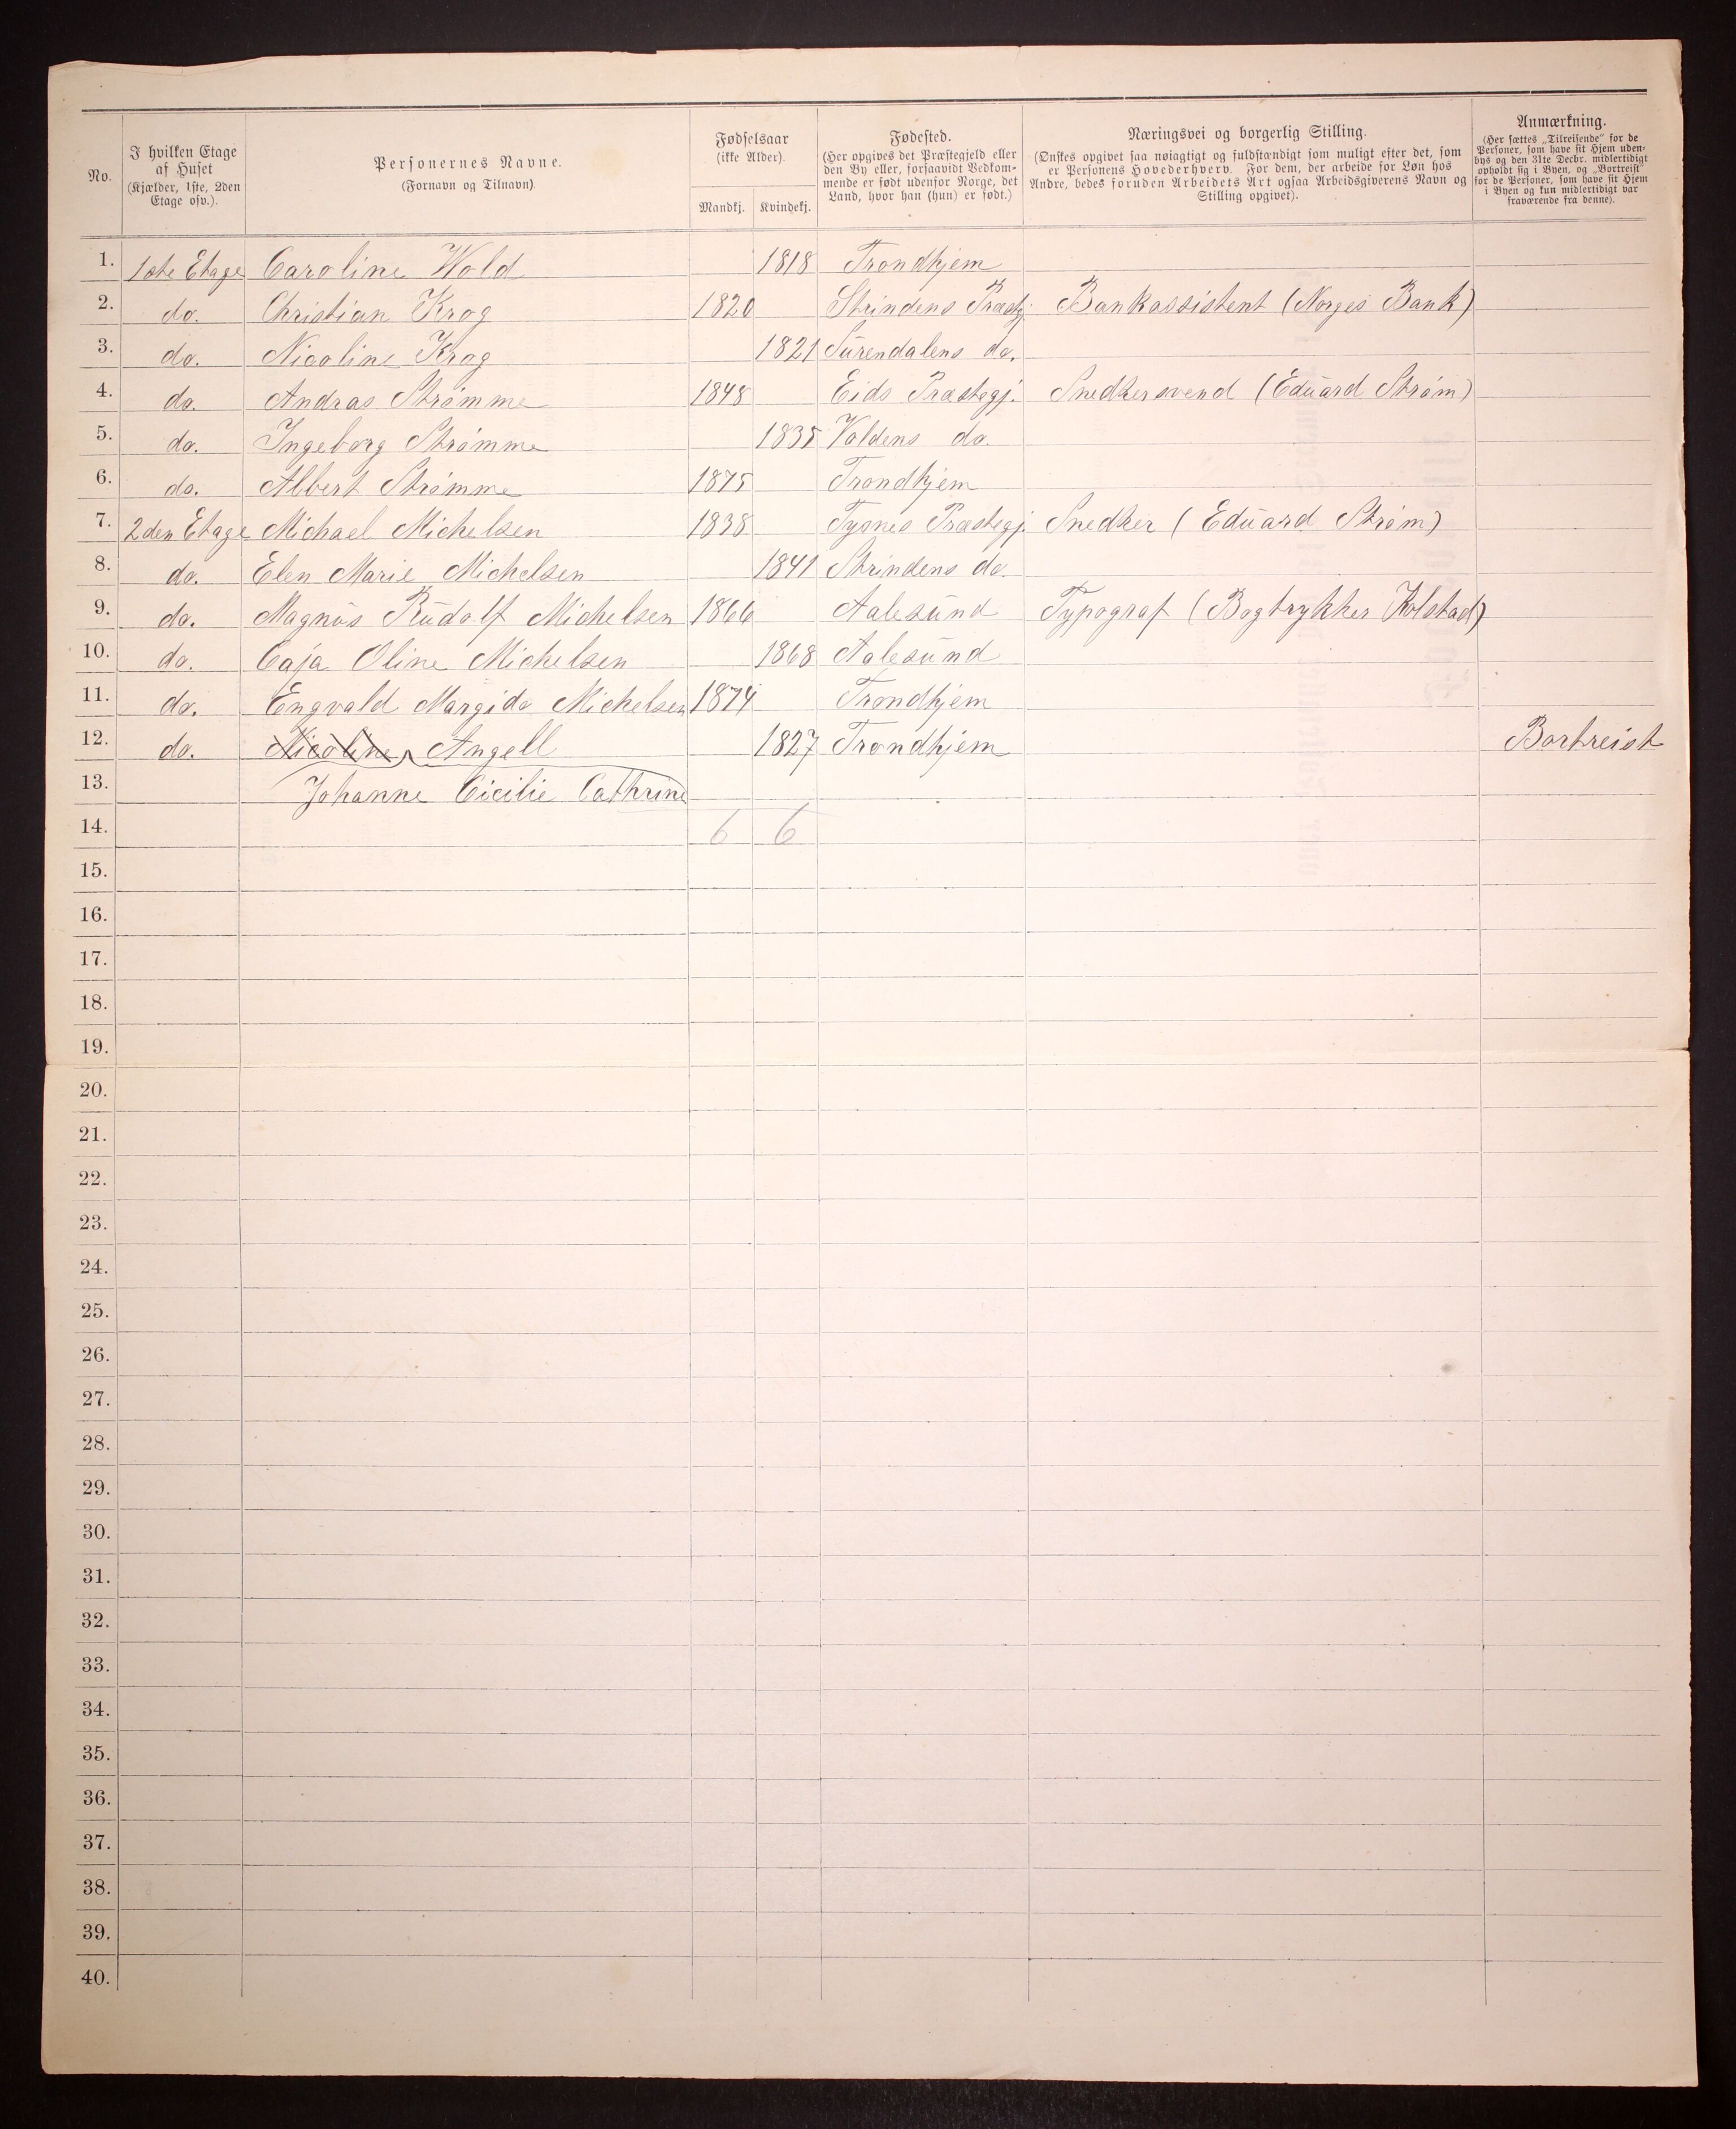 No.
I hvilken Etage
af Huset
(Kjælder, 1ste, 2den
Etage osv.).
Personernes Navne.
(Fornavn og Tilnavn).
Fødselsaar
(ikke Alder).
Mandkj. Kvindekj.
Fødested.
(Her opgives det Præstegjeld eller
den By eller, forsaavidt Vedkom-
mende er født udenfor Norge, det
Land, hvor han (hun) er født.)
Næringsvei og borgerlig Stilling.
(Ønskes opgivet saa nøiagtigt og fuldstændigt som muligt efter det, som
er Personens Hovederhverv. For dem, der arbeide for Løn hos
Andre, bedes foruden Arbeidets Art ogsaa Arbeidsgiverens Navn og
Stilling opgivet).
Anmærkning.
(Her sættes „Tilreisende“ for de
Personer, som have sit Hjem uden-
bys og den 31te Decbr. midlertidigt
opholdt sig i Byen, og „Bortreist“
for de Personer, som have sit Hjem
i Byen og kun midlertidigt var
fraværende fra denne).
1. 1ste Etage Caroline Wold 1818 Trondhjem
2. do. Christian Krog 1820 Strindens Præstgj. Bankassistent (Norges Bank)
3. do. Nicoline Krog 1821 Surendalens do.
4. do. Andras Strømme 1848 Eids Præstegj. Snedkersvend (Eduard Strøm)
5. do. Ingeborg Strømme 1835 Voldens do.
6. do. Albert Strømme 1875 Trondhjem
7. 2den Etage Michael Michelsen 1838 Tysnes Præstegj. Snedker (Eduard Strøm)
8. do. Elen Marie Michelsen 1841 Strindens do.
9. do. Magnus Rudolf Michelsen 1866 Aalesund Typograf (Bogtrykker Kolstad)
10. do. Caja Oline Michelsen 1868 Aalesund
11. do. Engvald Margido Michelsen 1874 Trondhjem
12. do. Nicoline Angell 1827 Trondhjem Bortreist
13. Johanne Cicilie Cathrine
14. 6 6
15.
16.
17.
18.
19.
20.
21.
22.
23.
24.
25.
26.
27.
28.
29.
30.
31.
32.
33.
34.
35.
36.
37.
38.
39.
40.